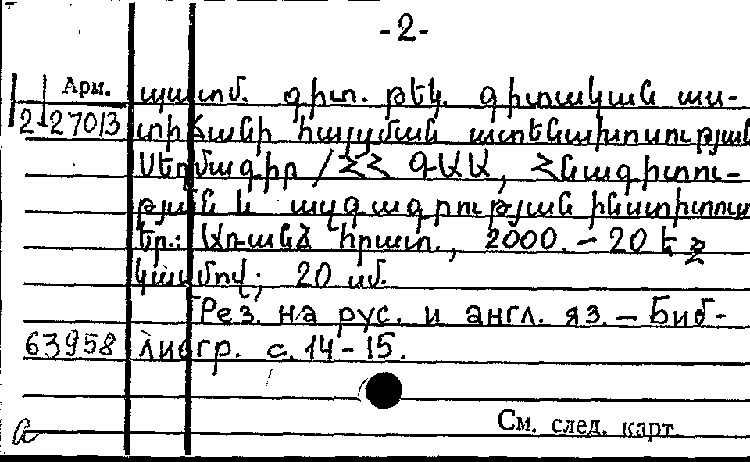 -2-
Арм. պատմ. գիտ. թեկ. գիտական աս-
2-27013 տիճանի հայցման ատենախոսության
Սեղմագիր / ՀՀ ԳԱԱ, Հնագիտու-
թյան և ազգագրության ինստիտուտ
Եր.: Առանձ հրատ., 2000. – 20 էջ
կազմով; 20 սմ.
Рез. на рус. и англ. яз. – Биб-
63958 лиогр. с. 14-15.
См. след. карт